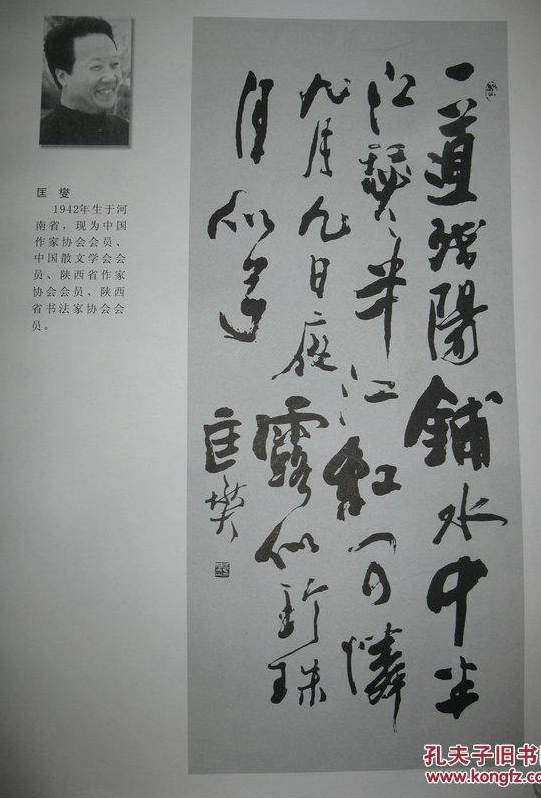 匡 燮
1942年生于河
南省，现为中国
作家协会会员、
中国散文学会会
员、陕西省作家
协会会员、陕西
省书法家协会会
员。
一道殘陽鋪水中半
江瑟々半江紅可憐
九月九日夜露似珍珠
月似弓
匡燮
孔夫子旧书网
www.kongfz.com